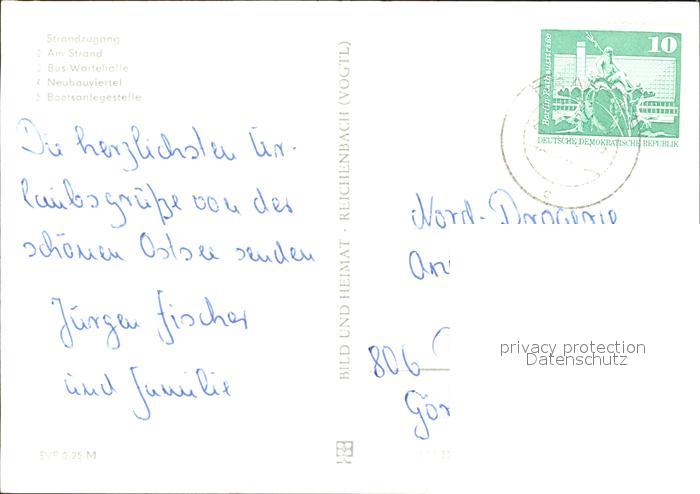 Strandzugang
2 Am Strand
3 Bus-Wartehalle
4 Neubauviertel
5 Bootsanlegestelle
Die herzlichsten Ur-
laubsgrüße von der
schönen Ostsee senden
Jürgen Fischer
und Familie
EVP 0,25 M
BILD UND HEIMAT · REICHENBACH (VOGTL)
10
Berlin-Rathausstraße
DEUTSCHE DEMOKRATISCHE REPUBLIK
Nord-
806
privacy protection
Datenschutz